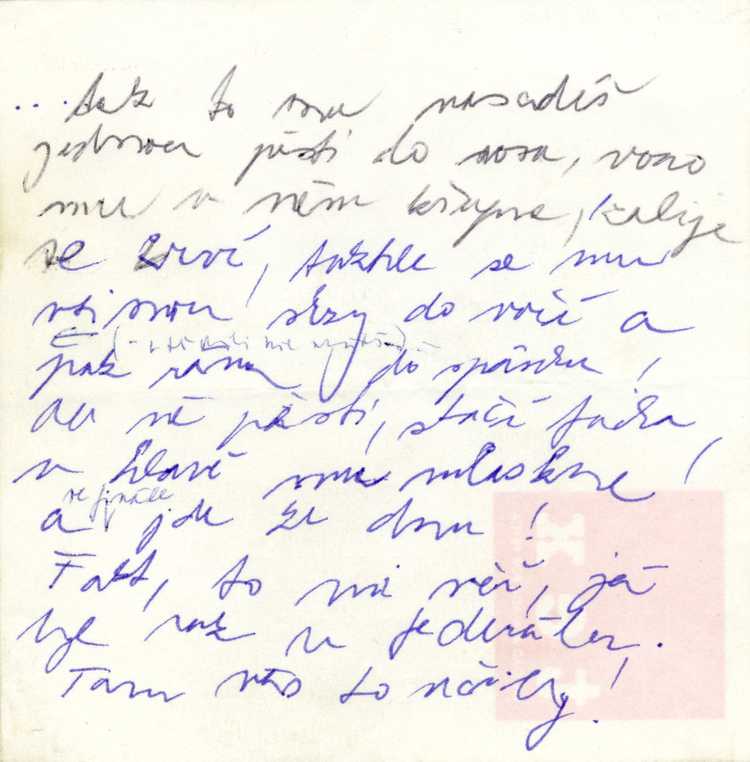 ... tak to mu nasadíš
jednou pěstí do nosu, vono
mu v něm křupne, zalije
se krví, takhle se mu
vsi slzy do vočí a
pak ránu do spánku,
ale ne pěstí, stačí facka,
v hlavě mu mlaskne!
a ve finále jde ke dnu!
Fakt, to mi věř, já
byl rok u federálů.
Tam nás to učily!